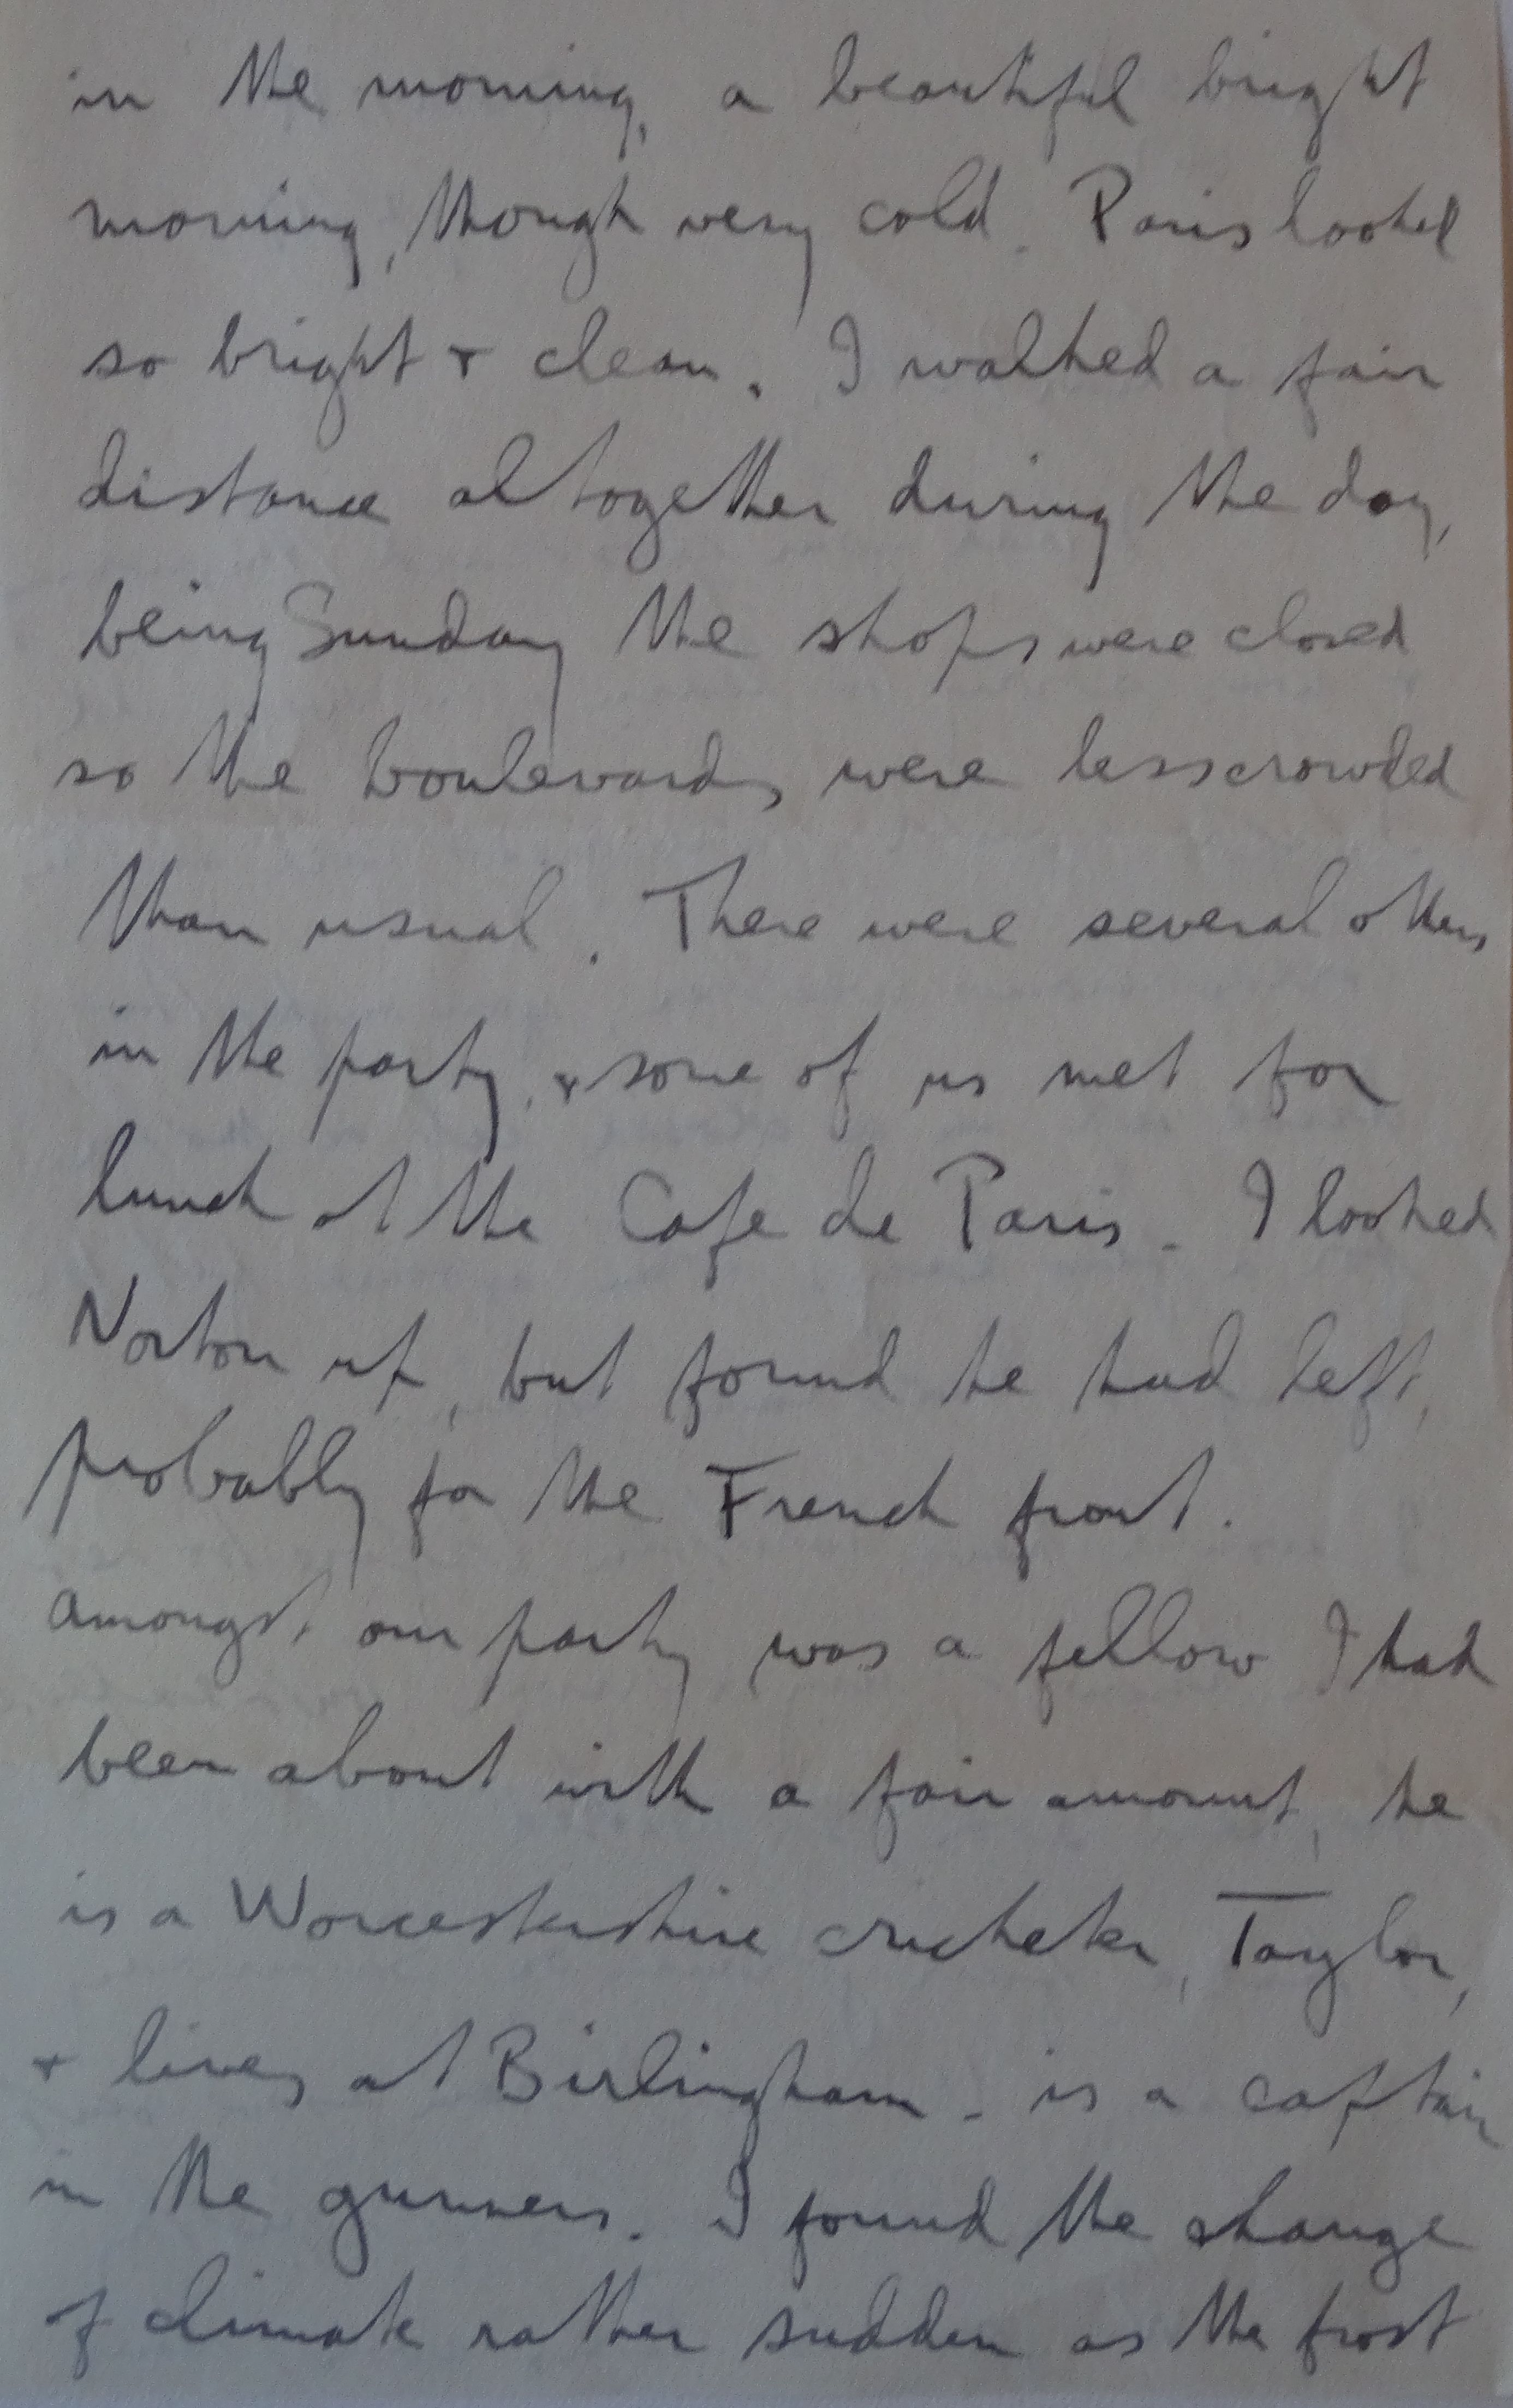 in the morning, a beautiful bright
morning, though very cold. Paris looked
so bright + clean. I walked a fair
distance altogether during the day,
being Sunday the shops were closed
so the boulevards were less crowded
than usual. There were several others
in the party, + some of us met for
lunch at the Cafe de Paris - I looked
Norton up, but found he had left,
probably for the French front.
Amongst our party was a fellow I had
been about with a fair amount, he
is a Worcestershire cricketer, Taylor,
+ lives at Birlingham - is a captain
in the gunners. I found the change
of climate rather sudden as the frost